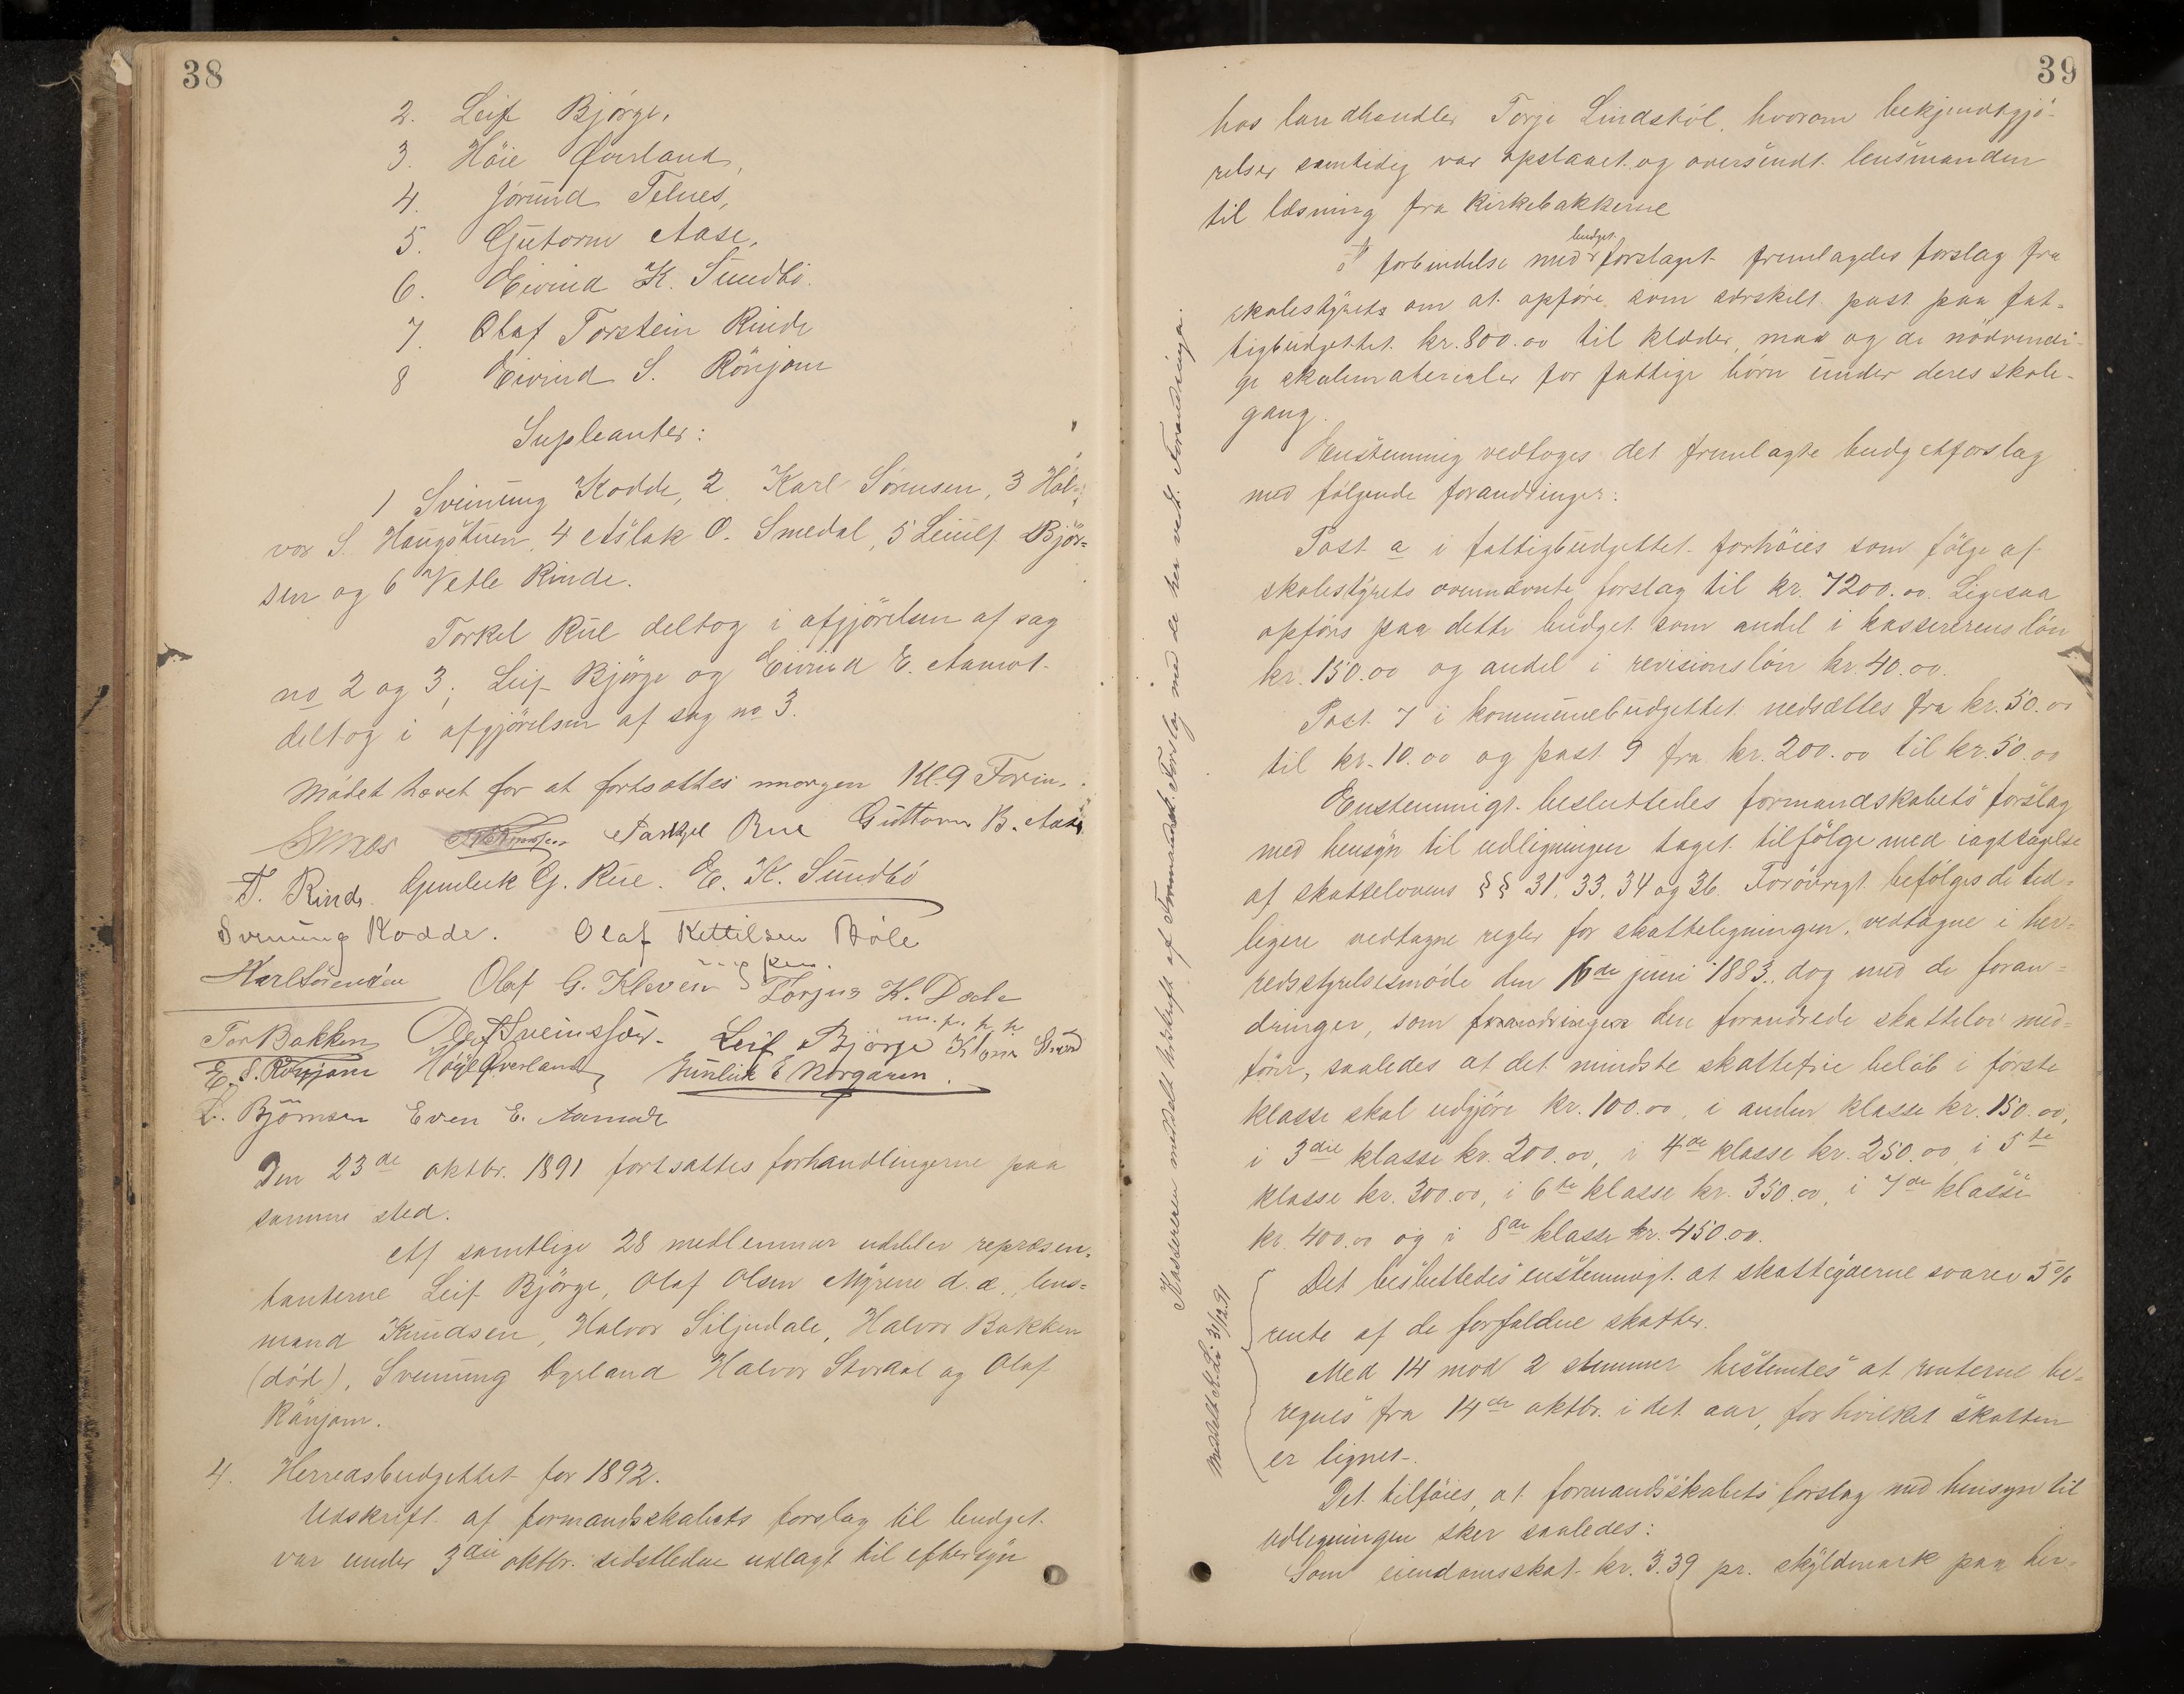 38
2. Leif Bjørge,
3. Høie Øverland,
4. Jørund Telnes,
5. Gutorm Aase,
6. Eivind K. Sundbö.
7. Olaf Torstein Rinde
8 Eivind S. Rönjom
Supleanter:
1 Sveinung Kodde, 2. Karl Sörensen, 3 Hal-
vor S. Haugstuen, 4 Aslak O. Smedal, 5 Leiulf Björ-
sen og 6 Vetle Rinde.
Torkel Rue deltog i afgjörelsen af sag
no 2 og 3; Leif Bjørge og Eivind E. Aamot
deltog i afgjörelsen af sag no 3.
Mödet hævet for at fortsættes imorgen Kl. 9 Form.
Tarkjel Rue Guttorm B. Aase
T. Rinde Gunleik G. Rue. E. K. Sundbö
Svenung Kodde. Olaf Kettilsen Böle
Karl Sörensen Olaf G. Kleven Torjus K. Dale
m. p. p.
Tor Bakken Olaf Sveinsson Leif Björge
E. S. Rönjom Höye Øverland Gunleik E Norgaren.
L. Björnsen Even E. Aamodt
Den 23de oktbr. 1891 fortsattes forhandlingerne paa
samme sted.
Af samtlige 28 medlemmer udeblev repræsen-
tanterne Leif Björge, Olaf Olsen Myrene d. æ., lens-
mand Knudsen, Halvor Siljudale, Halvor Bakken
(död), Sveinung Dyrland Halvor Stordal og Olaf
Rönjom.
4. Herredsbudgettet for 1892.
Udskrift af formandskabets forslag til budget
var under 3die oktbr. sidstledne udlagt til eftersyn
39
hos landhandler Torje Lindsköl, hvorom bekjendtgjö-
relser samtidig var opslaaet og oversendt lensmanden
til læsning fra kirkebakkerne
I forbindelse med budget forslaget fremlagdes forslag fra
skolestyrets om at opføre som særskilt post paa fat-
tigbudgettet kr. 800.00 til klæder, mad og de nödvendi-
ge skolematerialer for fattige börn under deres skole-
gang.
Enstemmig vedtoges det fremlagte budgetforslag
med følgende forandringer:
Post a i fattigbudgettet forhøies som følge af
skolestyrets ovennævnte forslag til kr. 7200.00. Ligesaa
opføres paa dette budget som andel i kassererens lön
kr. 150.00 og andel i revisionslön kr. 40.00.
Post 7 i kommunebudgettet nedsættes fra kr. 50.00
til kr. 10.00 og post 9 fra kr. 200.00 til kr. 50.00
Enstemmigt besluttedes formandskabets forslag
med hensyn til udligningen taget tilfölge med iagttagelse
af skattelovens §§ 31. 33. 34 og 36. Forövrigt befölges de tid-
ligere vedtagne regler for skatteligningen, vedtagne i her-
redsstyrelsesmöde den 16de juni 1883, dog med de foran-
dringer, som forandringer den forandrede skattelov med-
förer, saaledes at det mindste skattefrie belöb i förste
klasse skal udgjöre kr. 100.00, i anden klasse kr. 150.00,
i 3die klasse kr. 200.00, i 4de klasse kr. 250.00, i 5te
klasse kr. 300.00, i 6te klasse kr. 350.00, i 7de klasse
kr. 400.00 og i 8de klasse kr. 450.00.
Det besluttedes enstemmigt at skatteyderne svarer 5%
rente af de forfaldne skatter.
Med 14 mod 2 stemmer bestemtes at renterne be-
regnes fra 14de oktbr. i det aar, for hvilket skatten
er lignet.
Det tilføies, at formandsskabets forslag med hensyn til
udligningen sker saaledes:
Som eiendomsskat kr. 3.39 pr. skyldmark paa her-
Kassereren meddelt Udskrift af Formandsk. Forslag med de her vedt. Forandringer.
Meddelt 31/12 91